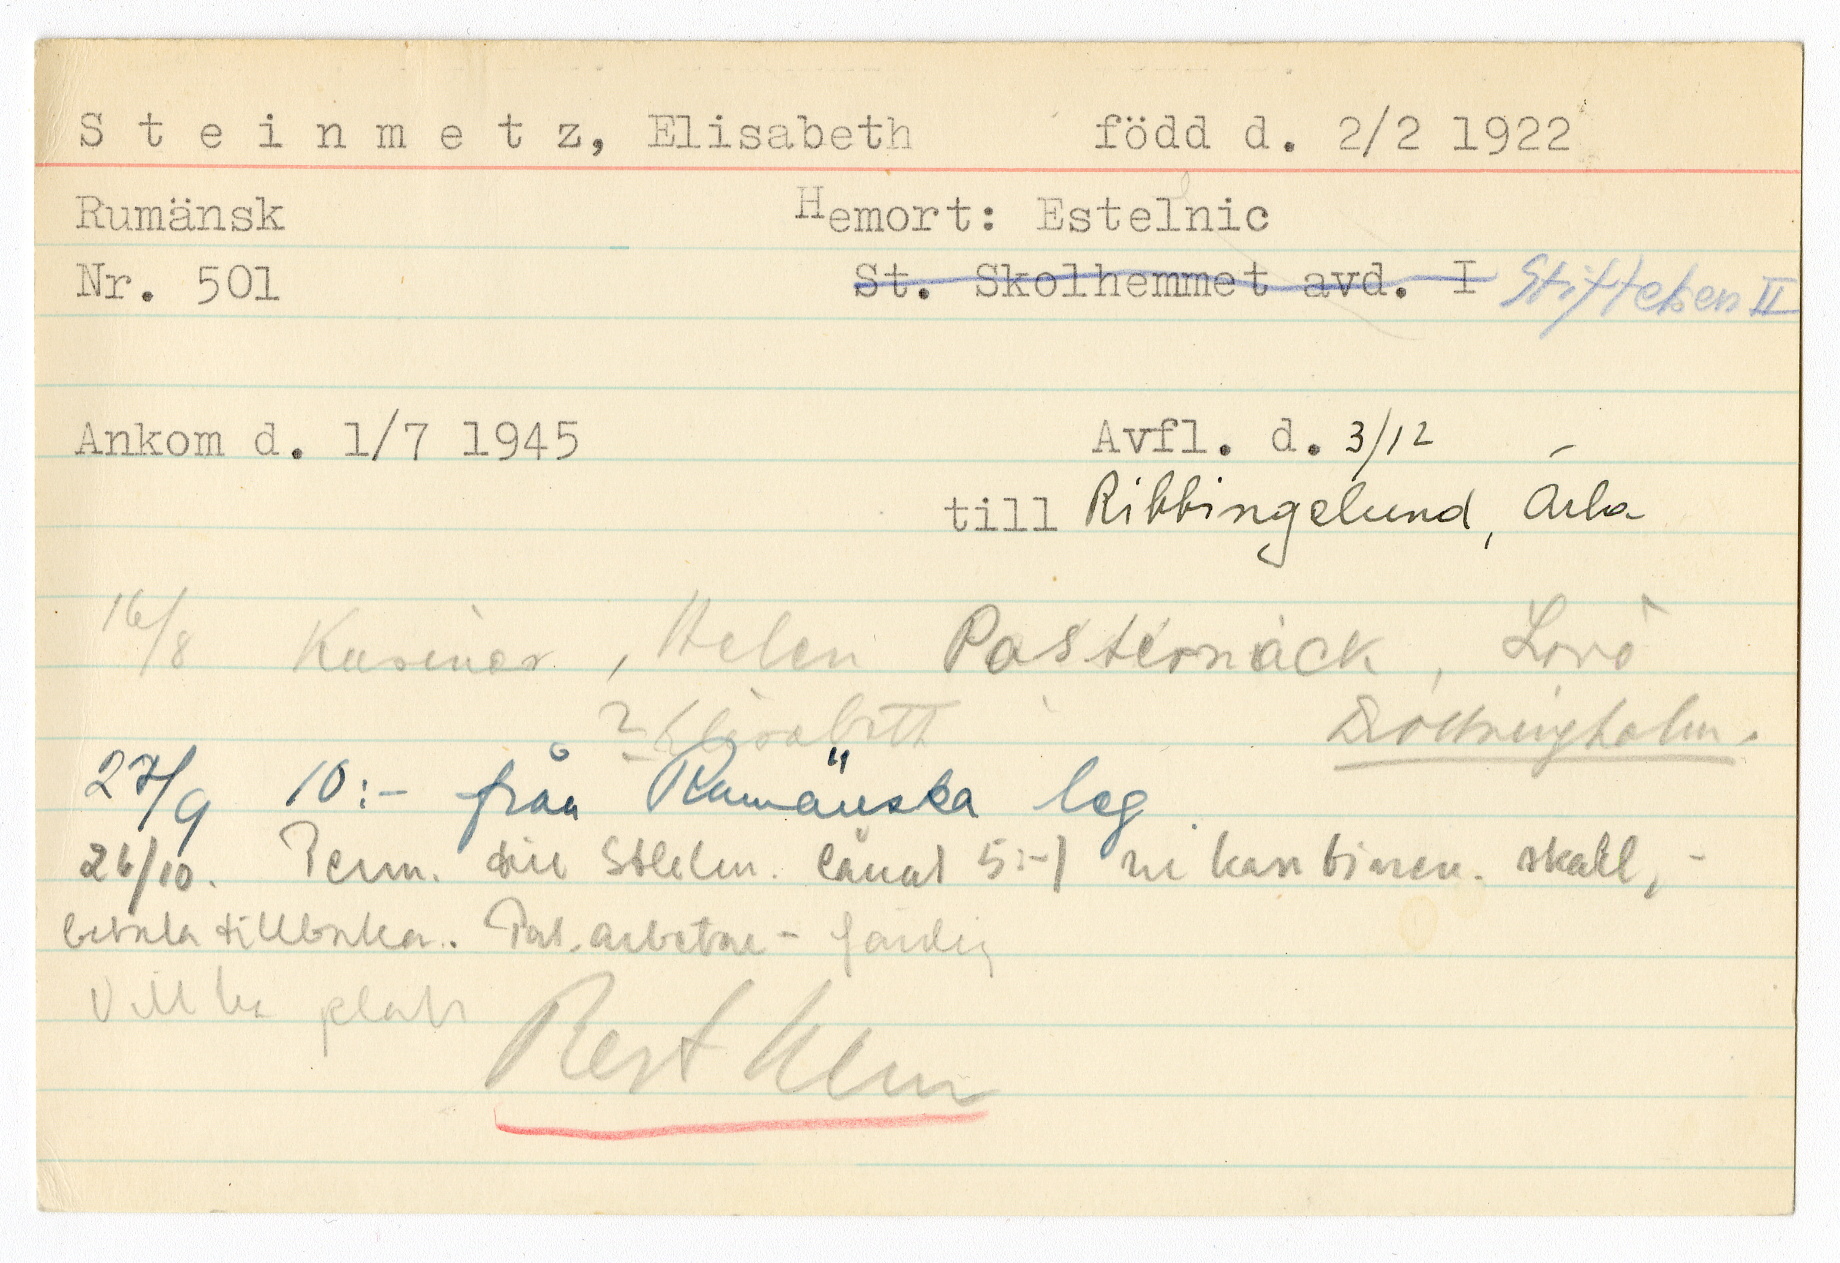 Steinmetz, Elisabeth född d. 2/2 1922
Rumänsk Hemort: Estelnic
Nr. 501 St. Skolhemmet avd. I Stiftelsen II
Ankom d. 1/7 1945 Avfl. d. 3/12
till Ribbingelund, Arla
16/8 Kusiner, Helen Pasternack, Lovö
? Elisabeth Drottningholm.
27/9 10:- från Rumänska leg.
26/10. Perm. till Sthlm. lånat 5:- ur kantinen. skall
betala tillbaka. Pat. arbetar - färdig
Vill ha plats